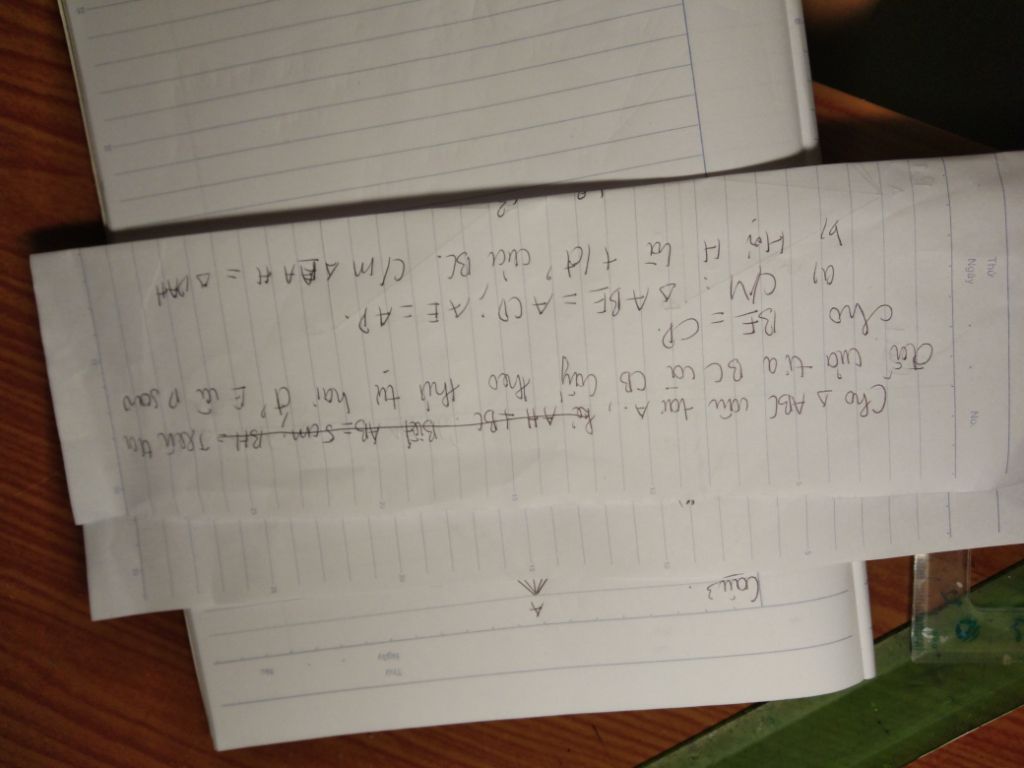 Câu 3
A
Cho Δ ABC cân tại A, kẻ AH ⊥ BC. Biết AB = 5cm BH = Trên tia
đối của tia BC và CB lấy theo thứ tự hai đ' E và D sao
cho BE = CD.
a) C/M: Δ ABE = ACD; AE = AD.
b) H là t/đ' của BC. C/m Δ BAH = Δ CAH
Thứ
Ngày
No.
Thứ
Ngày
No.